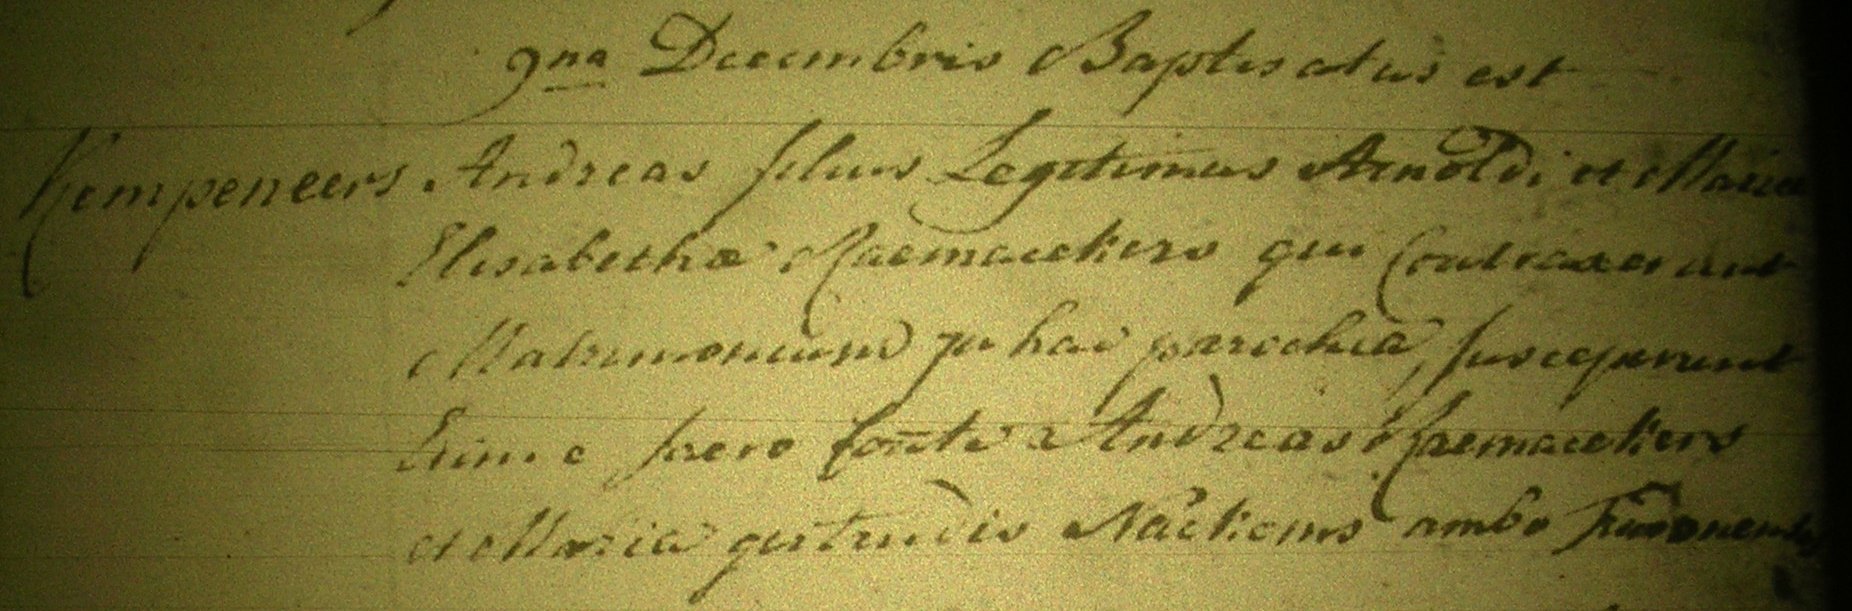 9na Decembris Baptisatus est
Kempeneers Andreas filius Legitimus Arnoldi et Maria
Elisabetha Raemaeckers qui Contraxerunt
Matrimonium in hac parochia, susceperunt
Eum e sacro fonte Andreas Raemaeckers
et Maria gertrudis Nackems ambo